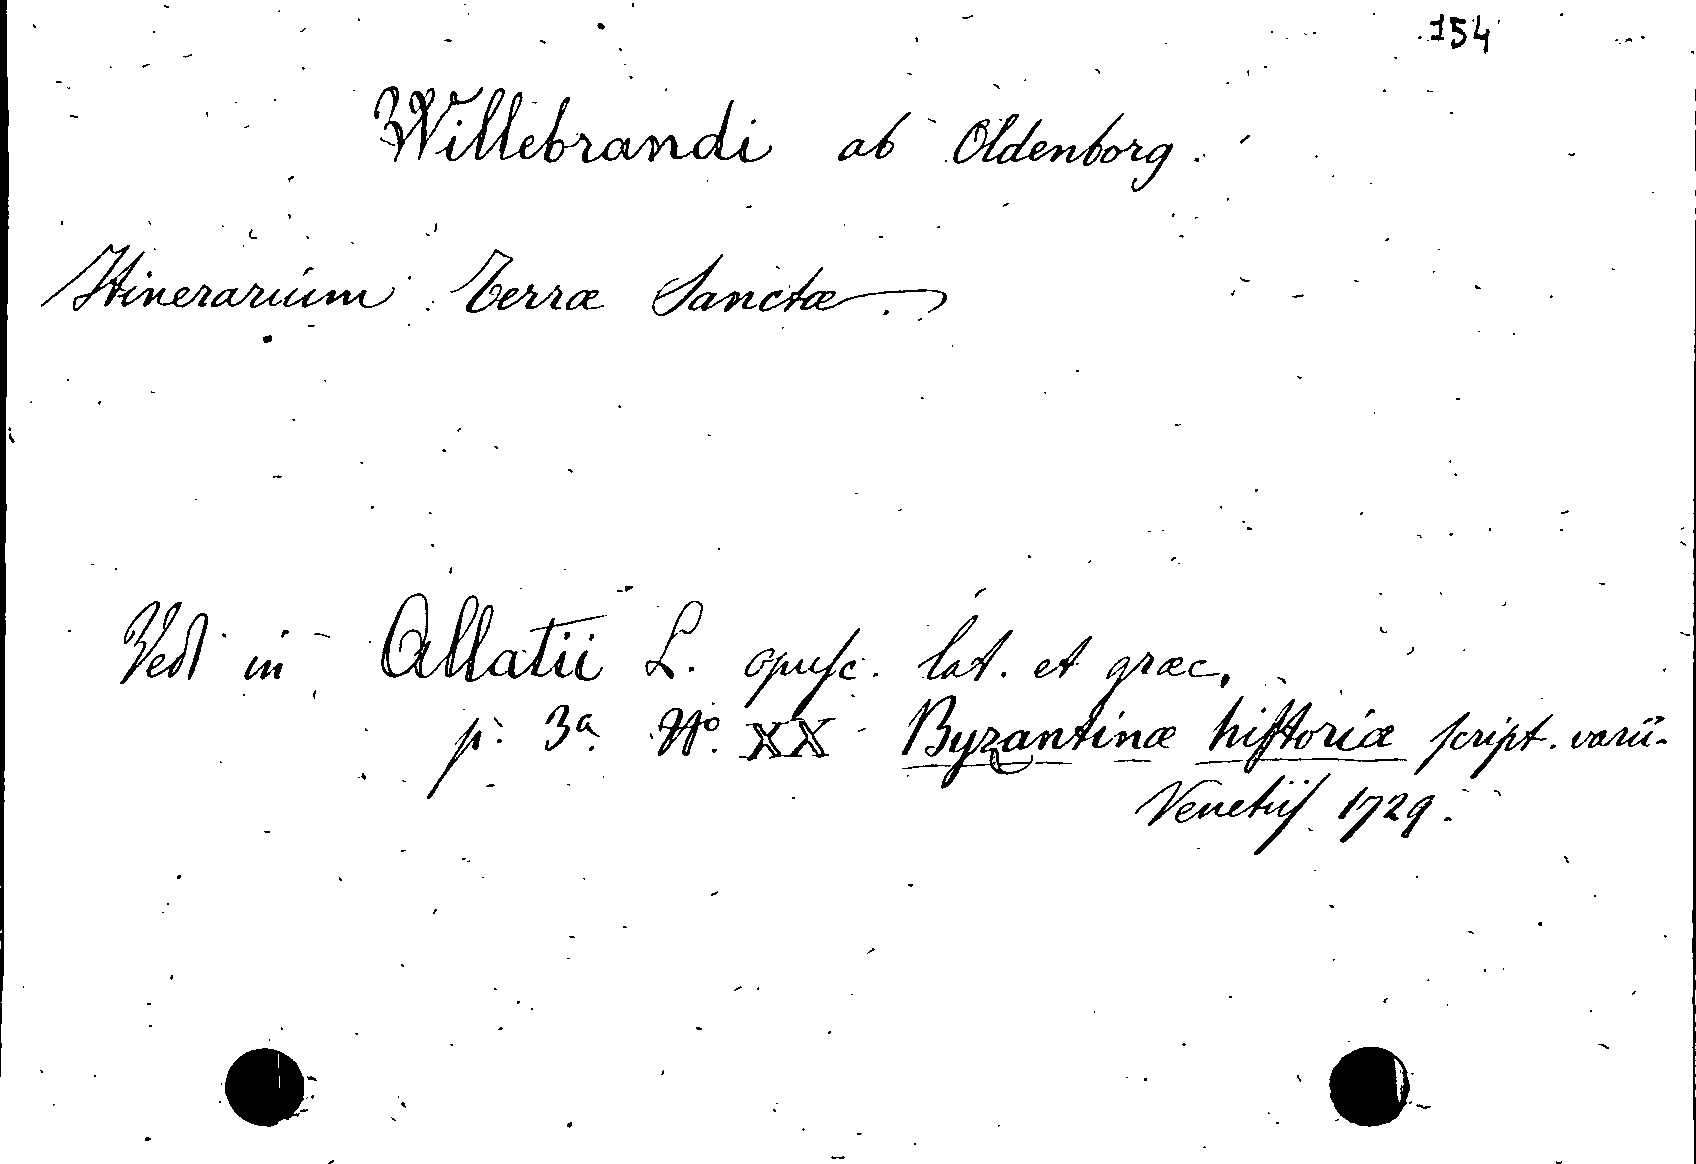 154
Willebrandi ab Oldenborg.
Itinerarium Terræ Sanctæ.
Vedi in Allatii L. opusc. lat. et græc.
p. 3ª. Nº. XX Byzantinæ historiæ script. varii.
Venetiis 1729.